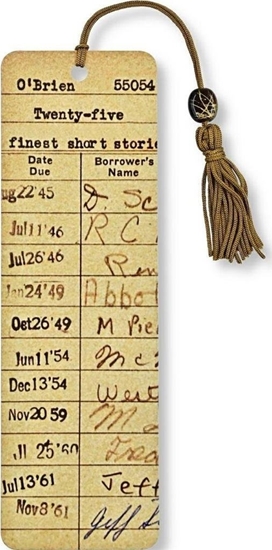 O'Brien 55054
Twenty-five
finest short storie
Date Due Borrower's Name
ug22'45 D. Sc
Jul11'46 R C
Jul26'46 Ren
Jan24'49 Abbot
Oct26'49 M Pie
Jun11'54 Mc
Dec13'54 West
Nov2059 M
25'60 Frea
Jul13'61 Jeff
Nov8'61 Jeff